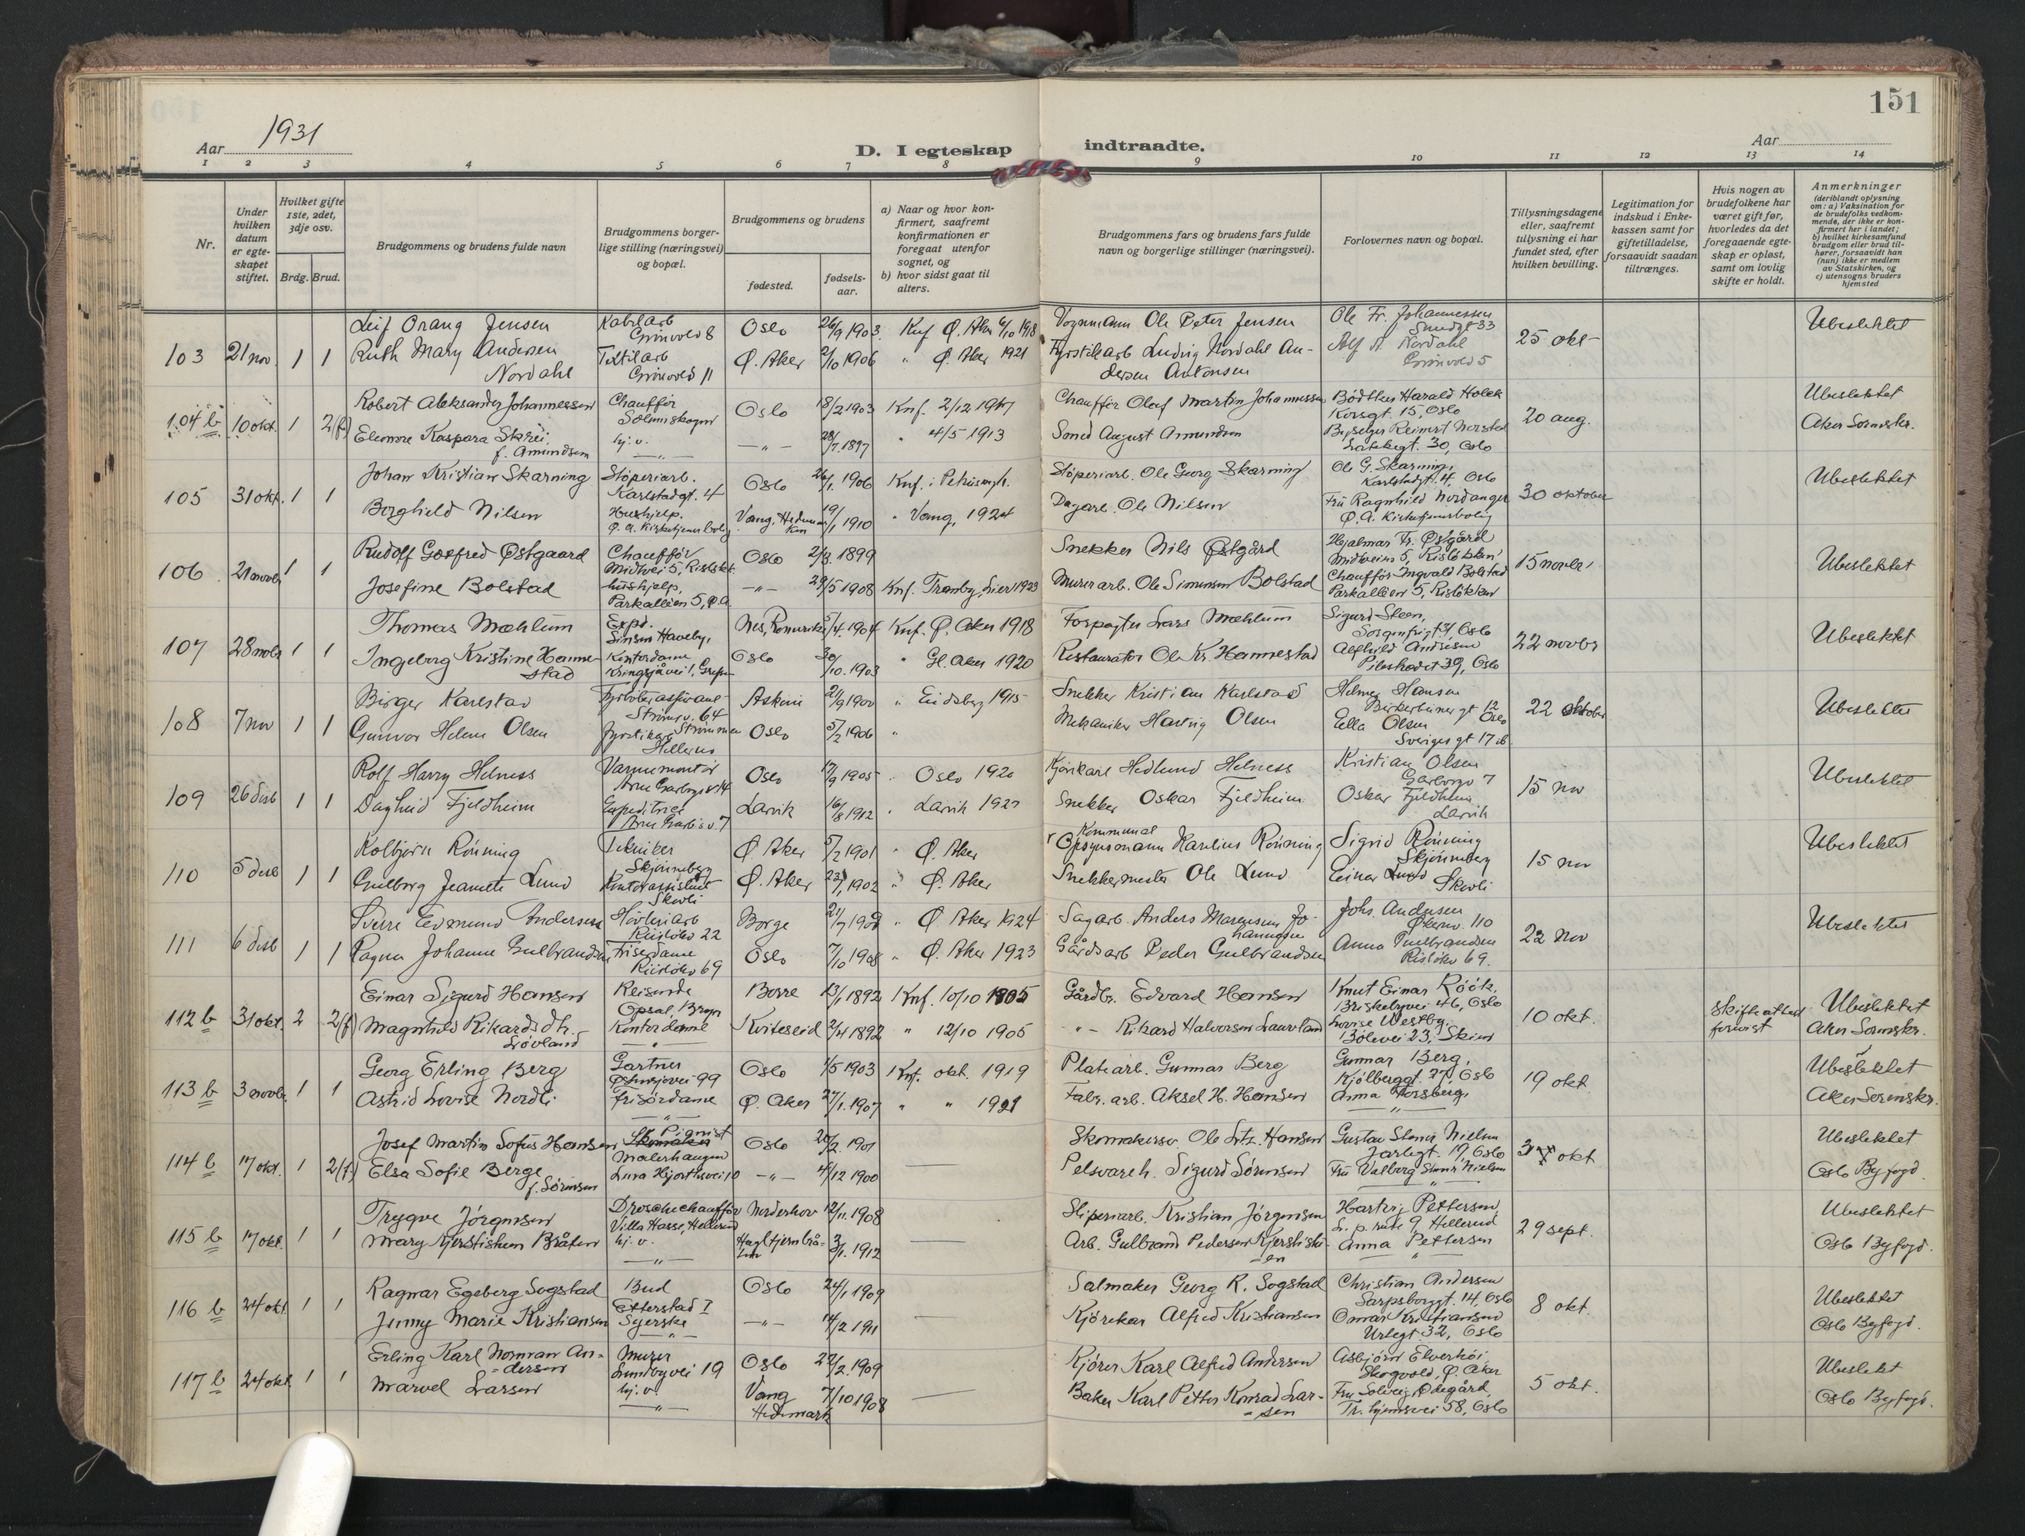 151
Aar 1931
D. I egteskap indtraadte.
Aar
1 2 3 4 5 6 7 8 9 10 11 12 13 14
Nr.
Under hvilken datum er egteskapet stiftet.
Hvilket gifte 1ste, 2det, 3dje osv.
Brdg. Brud.
Brudgommens og brudens fulde navn
Brudgommens borgerlige stilling (næringsvei) og bopæl.
Brudgommens og brudens
fødested.
fødselsaar.
a) Naar og hvor konfirmert, saafremt konfirmationen er foregaat utenfor sognet, og
b) hvor sidst gaat til alters.
Brudgommens fars og brudens fars fulde navn og borgerlige stillinger (næringsvei).
Forlovernes navn og bopæl.
Tillysningsdagene eller, saafremt tillysning ei har fundet sted, efter hvilken bevilling.
Legitimation for indskud i Enkekassen samt for giftetilladelse, forsaavidt saadan tiltrænges.
Hvis nogen av brudefolkene har været gift før, hvorledes da det foregaaende egteskap er opløst, samt om lovlig skifte er holdt.
Anmerkninger (deriblandt oplysning om: a) Vaksination for de brudefolks vedkommende, der ikke er konfirmert her i landet; b) hvilket kirkesamfund brudgom eller brud tilhører, forsaavidt han (hun) ikke er medlem av Statskirken, og c) utensogns bruders hjemsted
103 21 nov. 1 1
Leif Orang Jensen Kabelarb Grönvold 8 Oslo 26/9 1903. Knf Ø. Aker 6/10 1918 Vognmann Ole Peter Jensen Ole Fr. Johannessen 33 25 okt- Ubeslektet
Ruth Mary Andersen Nordahl Tekstilarb Grönvold 11 Ø. Aker 2/10 1906 " Ø. Aker 1921 Fyrstikarb Ludvig Nordahl Andersen Antonsen Alf A. Nordahl Grönvold 5
104 b 10 okt. 1 2(f)
Robert Aleksander Johannessen Chauffør Solemskogen Oslo 18/2 1903 Knf. 2/12 1917 Chauffør Olaf Martin Johannessen Bödtker Harald Holek Korsgt. 15, Oslo 20 aug. Ubeslektet
Elenore Kaspara Skrei, f. Amundsen hj. v. -"- -"- 28/7 1897 " 4/5 1913 Smed August Amundsen Reinert Norstad 30, Oslo Aker Sorenskr.
105 31 okt. 1 1
Johan Kristian Skarning Støperiarb. Karlstadgt. 4 Oslo 26/1. 1906 Knf. i Petrimgh. Støperiarb. Ole Georg Skarning Ole G. Skarning, Karlstadgt. 4, Oslo 30 oktober Ubeslektet
Borghild Nilsen Hushjelp. Ø. A. Kirketjenerbolig Vang, Hedmarken 19/1 1910 " Vang, 1924 Dagarb. Ole Nilsen Fru Ragnhild Nordanger Ø. A. Kirketjenerbolig
106 21 novbr 1 1
Rudolf Gotfred Østgaard Chauffør Midtvei 5, Risløkk. Oslo 2/3. 1899 Snekker Nils Østgård Hjalmar Fr. Østgård Midtveien 5, Risløkken 15 novbr. Ubeslektet
Josefine Bolstad hushjelp, Parkalleen 5, Ø. A. -"- 29/5 1908 Knf. Tranby, Lier 1923 Murerarb. Ole Simensen Bolstad Chauffør Ingvald Bolstad Parkalleen 5, Risløkken
107 28 novbr 1 1
Thomas Mæhlum Exped. Sinsen Haveby, Nes, Romerike 5/4. 1904 Knf. Ø. Aker 1918 Forpagter Lars Mæhlum Sigurd Steen, Sorgenfrigt 31, Oslo 22 novbr Ubeslektet
Ingeborg Kristine Hannestad Kontordame Kringsjåvei 1, Grefsen Oslo 30/10. 1903 " Gl. Aker 1920 Restauratør Ole Kr. Hannestad Alfhild Andersen Pilestredet 39, Oslo
108 7 nov 1 1
Birger Karlstad Strömsv. 64 Askim 21/9 1900 " Eidsberg 1915 Snekker Kristian Karlstad Helmer Hansen Birkebeinergt 12 Oslo 22 oktober Ubeslektet
Gunvor Helene Olsen Fyrstikarb Strömmen Hellerud Oslo 5/2 1906 " Mekaniker Hartvig Olsen Ella Olsen Sverigesgt 17 b.
109 26 desb 1 1
Rolf Harry Helness Varmemontör Arne Garborgsv 14 Oslo 17/9 1905 " Oslo 1920 Kjörekarl Hedlund Helness Kristian Olsen Garborgv 7 15 nov Ubeslektet
Daghild Fjeldheim Expeditrice Arne Garb.s v. 7 Larvik 16/8 1912 " Larvik 1927 Snekker Oskar Fjeldheim Oskar Fjeldheim Larvik
110 5 desb 1 1
Kolbjörn Rönning Tekniker Skjönneberg Ø. Aker 5/2 1901 " Ø. Aker Kommunal Opsynsmann Karelius Rönning Sigrid Rönning Skjönneberg 15 nov Ubeslektet
Gulborg Jeanette Lund Kontorassistent Skovli Ø. Aker 23/1 1902 " Ø. Aker Snekkermester Ole Lund Einar Lund Skovli
111 6 desb 1 1
Sverre Edmund Andersen Høvleriarb Risløkv 22 Borge 21/7 1909 " Ø. Aker 1924 Sagarb. Anders Marensius Johannesen Johs. Andersen Økernv. 110 22 Nov Ubeslektet
Ragna Johanne Gulbrandsen Friserdame Risløkv 69 Oslo 7/10 1908 " Ø. Aker 1923 Gårdsarb Peder Gulbrandsen Anna Gulbrandsen Risløkv 69.
112 b 31 okt. 2 2(f)
Einar Sigurd Hansen Reisende Opsal, Bryn Borre 13/1 1892 Knf. 10/10 1905 Gårdbr. Edvard Hansen Knut Einar Röök. Briskebyvei 46, Oslo 10 okt. Skifteattest forevist Ubeslektet
Magnhild Rikardsdtr. Løvland Kontordame -"- Kviteseid 2/4 1892 " 12/10 1905 -"- Rikard Halvorsen Lauvland Lovise Westby, Bölevei 23, Skien Aker Sorenskr.
113 b 3 novbr. 1 1
Georg Erling Berg Gartner Østensjøvei 99 Oslo 1/5 1903 Knf. okt. 1919 Platearb. Gunnar Berg Gunnar Berg, Kjølberggt. 27, Oslo 19 okt. Ubeslektet
Astrid Lovise Nordli Frisördame -"- Ø. Aker 27/1. 1907 " " 1921 Fabr. arb. Aksel H. Hansen Anna Thorsberg, -"- Aker Sorenskr.
114 b 17 okt. 1 2(f)
Josef Martin Sofus Hansen Malerhaugen Oslo 20/2. 1901 Skomakersv Ole Hansen Gustav Stener Nielsen Jarlegt. 17, Oslo 3 okt Ubeslektet
Elsa Sofie Berge f. Sørensen Luna Hjorthsvei 10 -"- 4/12 1900 Pelsvareh. Sigurd Sörensen Fru Valborg Stener Nielsen -"- Oslo Byfogd.
115 b 17 okt. 1 1
Trygve Jørgensen Droschechauffør Villa Hasse, Hellerud Norderhov 12/11. 1908 Sliperiarb. Kristian Jørgensen Hartvig Pettersen, L. p. rute 9, Hellerud 29 sept. Ubeslektet
Mary Kjerstistuen Bråten hj. v. -"- 3/1. 1912 Arb. Gulbrand Pedersen Kjerstistuen Anna Pettersen " Oslo Byfogd.
116 b 24 okt. 1 1
Ragnar Egeberg Sogstad Bud Etterstad I Oslo 24/1 1909 Salmaker Georg R. Sogstad Christian Andersen Sarpsborggt. 14, Oslo 8 okt. Ubeslektet
Jenny Marie Kristiansen Syerske -"- -"- 14/2 1911 Kjørekar Alfred Kristiansen Omar Kristiansen Urtegt. 32, Oslo Oslo Byfogd.
117 b 24 okt 1 1
Erling Karl Norman Andersen Murer Lundbyvei 19 Oslo 22/2. 1909 Kjører Karl Alfred Andersen Asbjörn Elverhöi, Skogvold, Ø. Aker 5 okt. Ubeslekt
Marvel Larsen hj. v. -"- Vang Hedemark 7/10 1908 Baker Karl Petter Konrad Larsen Fru Solveig Ødegård, Tr.hjemsvei 58, Oslo Oslo Byfogd.